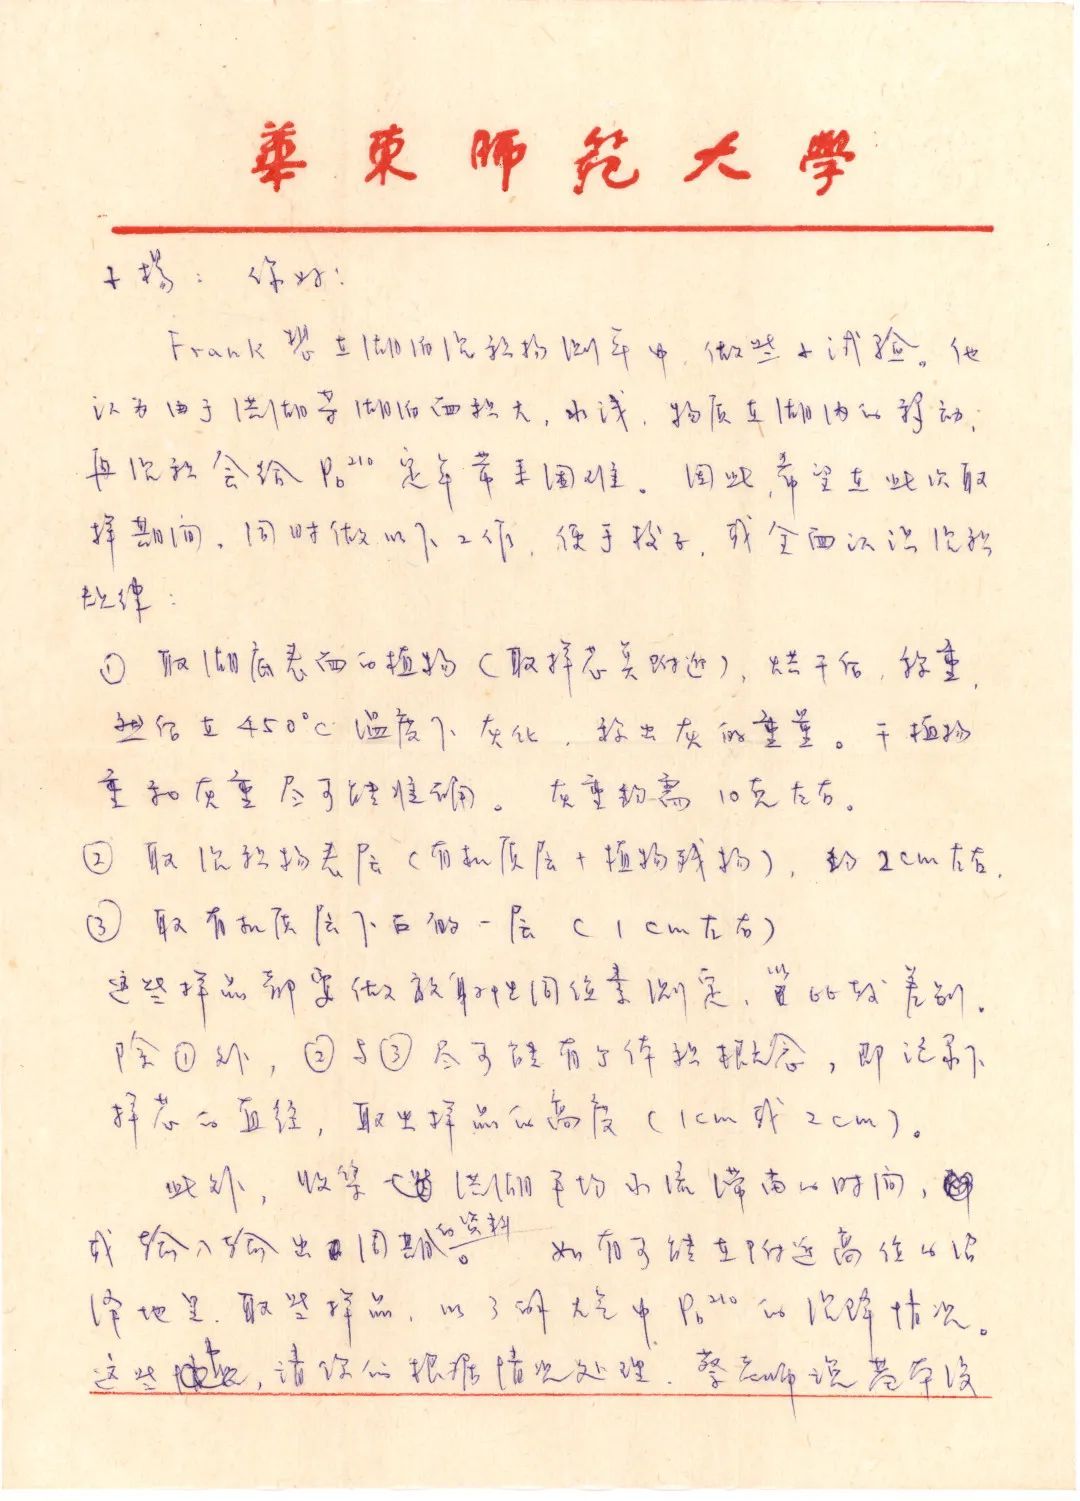 華東师范大學
小楊：你好！
Frank想在湖泊沉积物测年中，做些小试验。他
认为由于洪湖等湖泊面积大，水浅，物质在湖内的移动，
再沉积会给Pb²¹⁰定年带来困难。因此，希望在此次取
样期间，同时做以下工作，便于校正，或全面认识沉积
规律：
① 取湖底表面的植物（取样芯点附近），烘干后，称重，
然后在450°C温度下灰化，称出灰的重量。干植物
重和灰重尽可能准确。灰重约需10克左右。
② 取沉积物表层（有机质层＋植物残物），约2cm左右，
③ 取有机质层下面的一层（1cm左右）
这些样品都要做放射性同位素测定，比较差别。
除①外，②与③尽可能有个体积概念，即记录下
样芯的直径，取出样品的高度（1cm或2cm）。
此外，收集洪湖平均水流滞留的时间，
或输入输出周期的资料。如有可能在附近高位的沼
泽地里，取些样品，以了解大气中Pb²¹⁰的沉降情况。
这些，请你们根据情况处理。蔡老师说